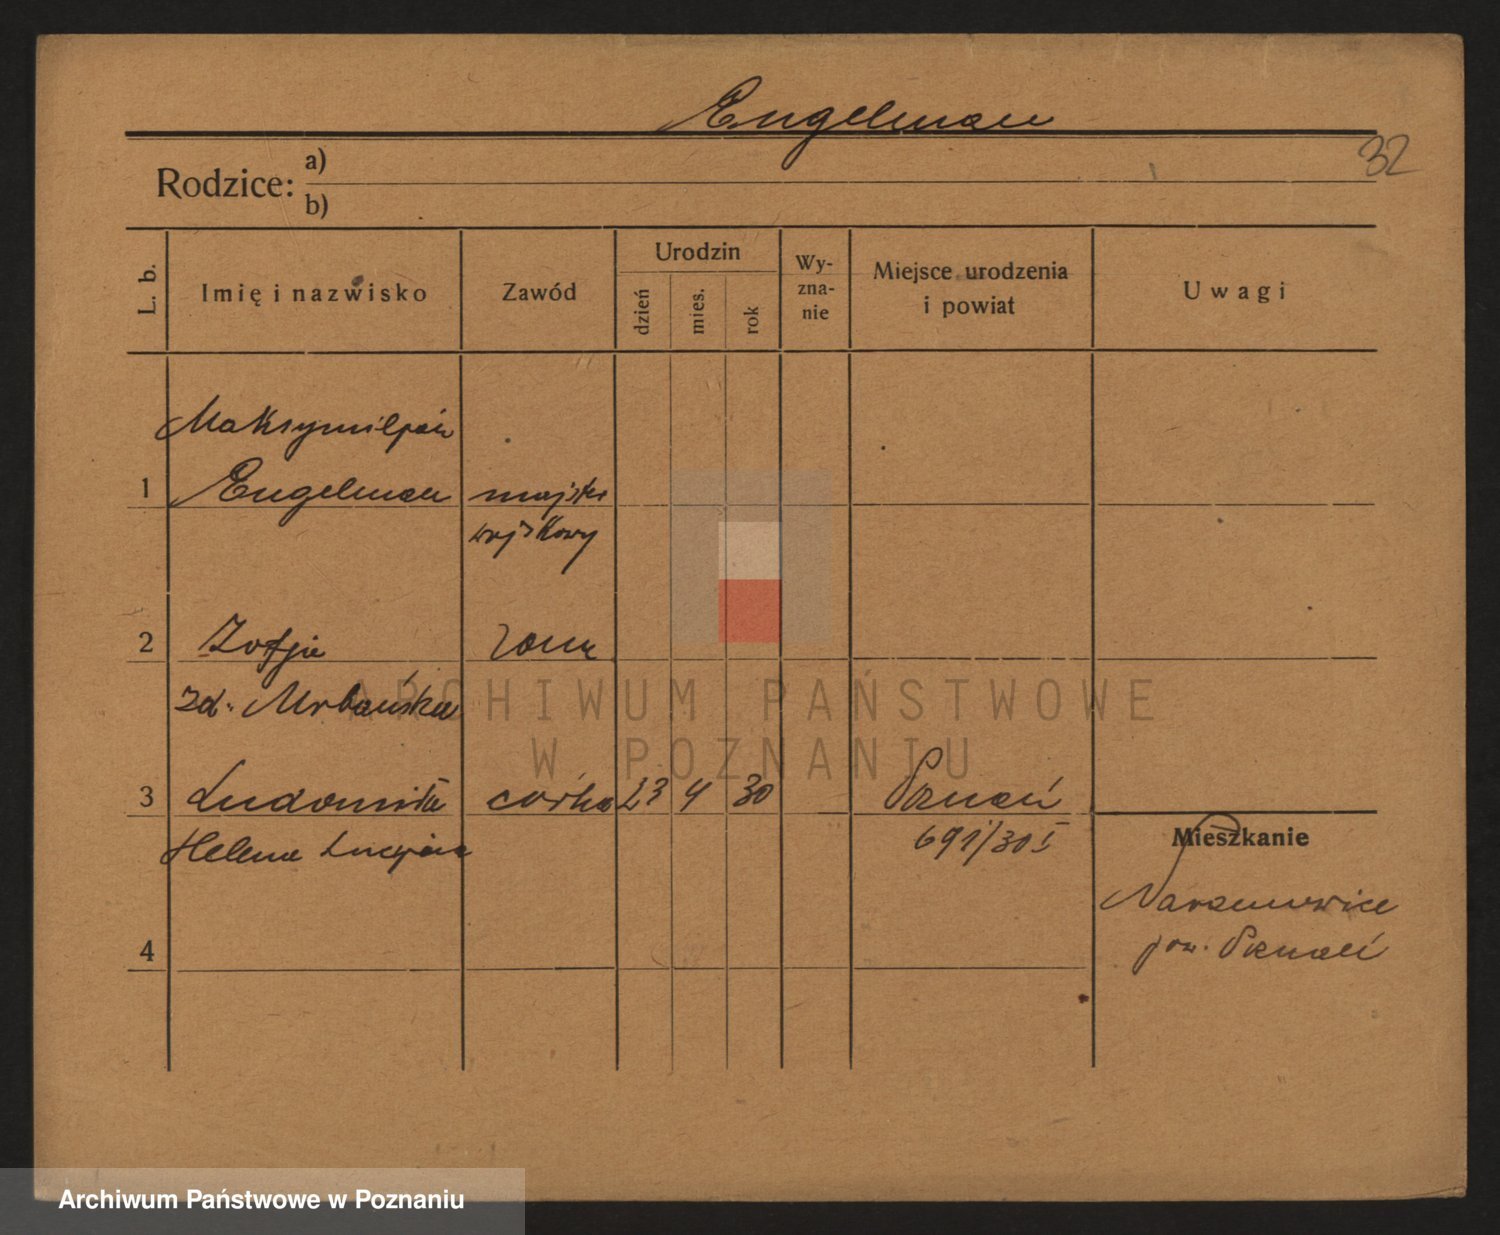 Engelman
32
Rodzice: a)
b)
L. b. Imię i nazwisko Zawód Urodzin dzień mies. rok Wy-zna-nie Miejsce urodzenia i powiat Uwagi
Maksymiljan
1 Engelman majster
wojskowy
2 Zofja żona
zd. Urbańska
3 Ludomiła córka 23 4 30 Poznań
Helena Lucyna 691/30 I
Mieszkanie
pow. Poznań
4
ARCHIWUM PAŃSTWOWE
W POZNANIU
Archiwum Państwowe w Poznaniu